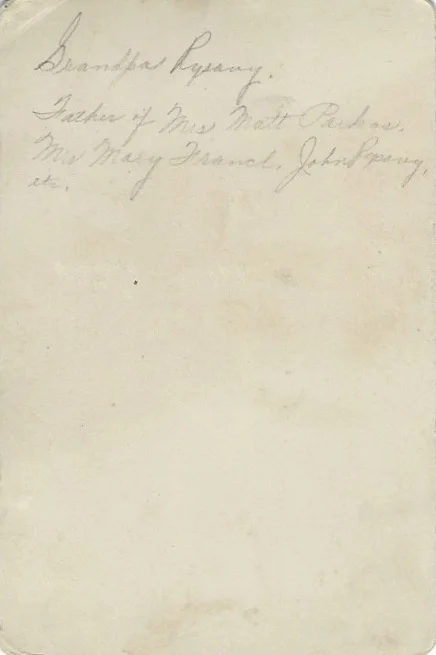 Grandpa Rysavy.
Father of Mrs Matt Parkos,
Mrs Mary Francl, John Rysavy,
etc.